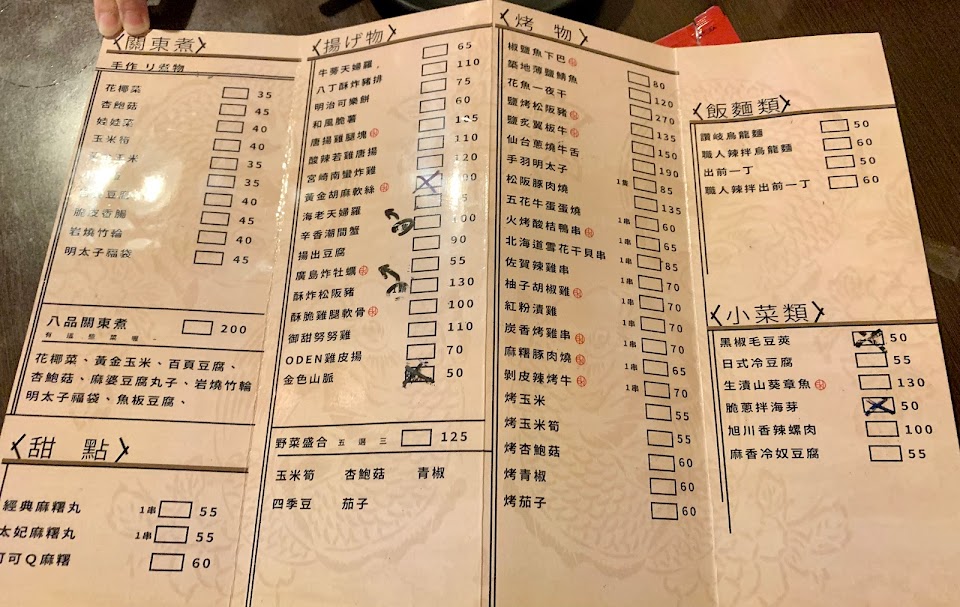 關東煮
手作り煮物
花椰菜 35
杏鮑菇 45
娃娃菜 40
玉米筍 40
玉米 35
35
豆腐 40
脆皮香腸 45
岩燒竹輪 40
明太子福袋 45
八品關東煮 200
有這些菜喔
花椰菜、黃金玉米、百頁豆腐、
杏鮑菇、麻婆豆腐丸子、岩燒竹輪
明太子福袋、魚板豆腐、
甜點
經典麻糬丸 1串 55
太妃麻糬丸 1串 55
可可Q麻糬 60
揚げ物
牛蒡天婦羅 65
八丁酥炸豬排 110
明治可樂餅 75
和風脆薯 60
唐揚雞腿塊
酸辣若雞唐揚 110
宮崎南蠻炸雞 120
黃金胡麻軟絲
海老天婦羅
辛香潮間蟹 100
揚出豆腐 90
廣島炸牡蠣 55
酥炸松阪豬 130
酥脆雞腿軟骨 100
御甜努努雞 110
ODEN雞皮揚 70
金色山脈 50
野菜盛合 五選三 125
玉米筍 杏鮑菇 青椒
四季豆 茄子
烤物
椒鹽魚下巴 80
築地薄鹽鯖魚 120
花魚一夜干 270
鹽烤松阪豬 135
鹽炙翼板牛 150
仙台蔥燒牛舌 190
手羽明太子 1隻 85
松阪豚肉燒 135
五花牛蛋蛋燒 1串 60
火烤酸桔鴨串 1串 65
北海道雪花干貝串 1串 85
佐賀辣雞串 1串 70
柚子胡椒雞 1串 70
紅粉漬雞 1串 70
炭香烤雞串 1串 70
麻糬豚肉燒 1串 65
剝皮辣烤牛 1串 70
烤玉米 55
烤玉米筍 55
烤杏鮑菇 60
烤青椒 60
烤茄子 60
飯麵類
讚岐烏龍麵 50
職人辣拌烏龍麵 60
出前一丁 50
職人辣拌出前一丁 60
小菜類
黑椒毛豆莢 50
日式冷豆腐 55
生漬山葵章魚 130
脆蔥拌海芽 50
旭川香辣螺肉 100
麻香冷奴豆腐 55